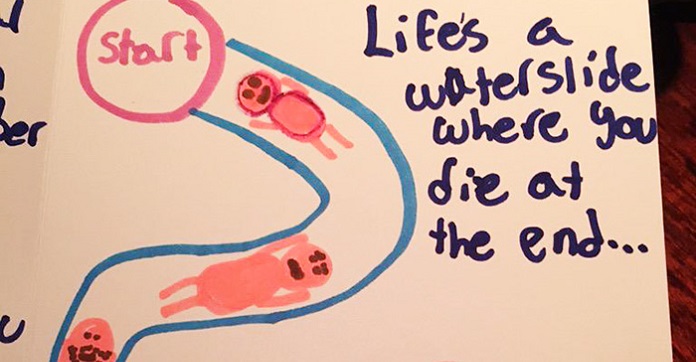 Start
Life's a
waterslide
where you
die at
the end...